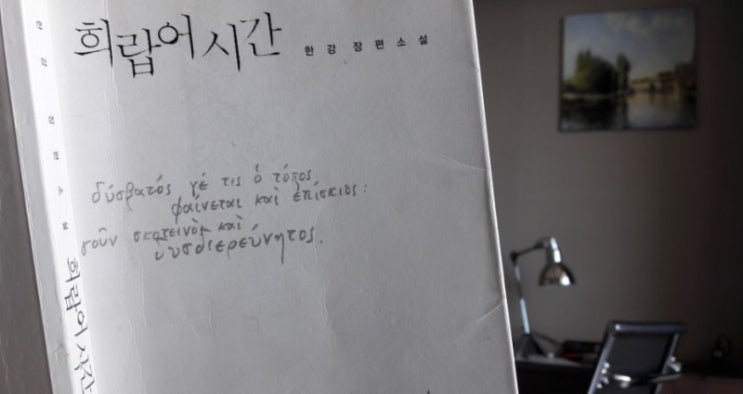 희랍어 시간
한강 장편소설
δύσβατός γέ τις ὁ τόπος
φαίνεται καὶ ἐπίσκιος:
γοῦν σκοτεινὸς καὶ
δυσδιερεύνητος.
한강 장편소설
희랍어 시간